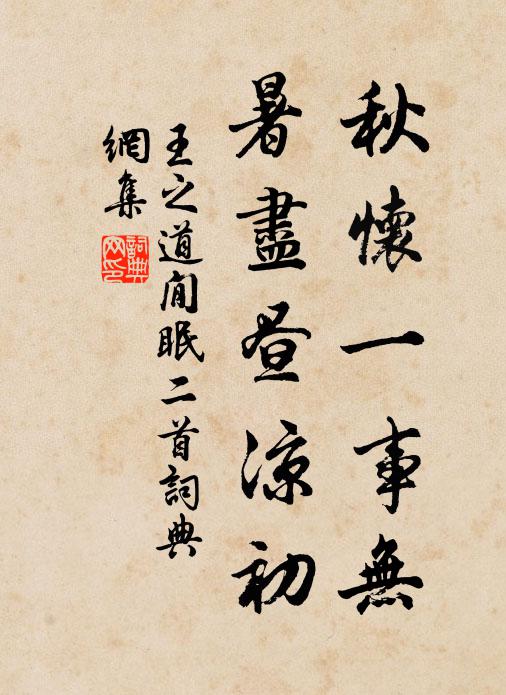 秋懷一事無
暑盡昼涼初
王之道閒眠二首詞典
網集
詞典
网印